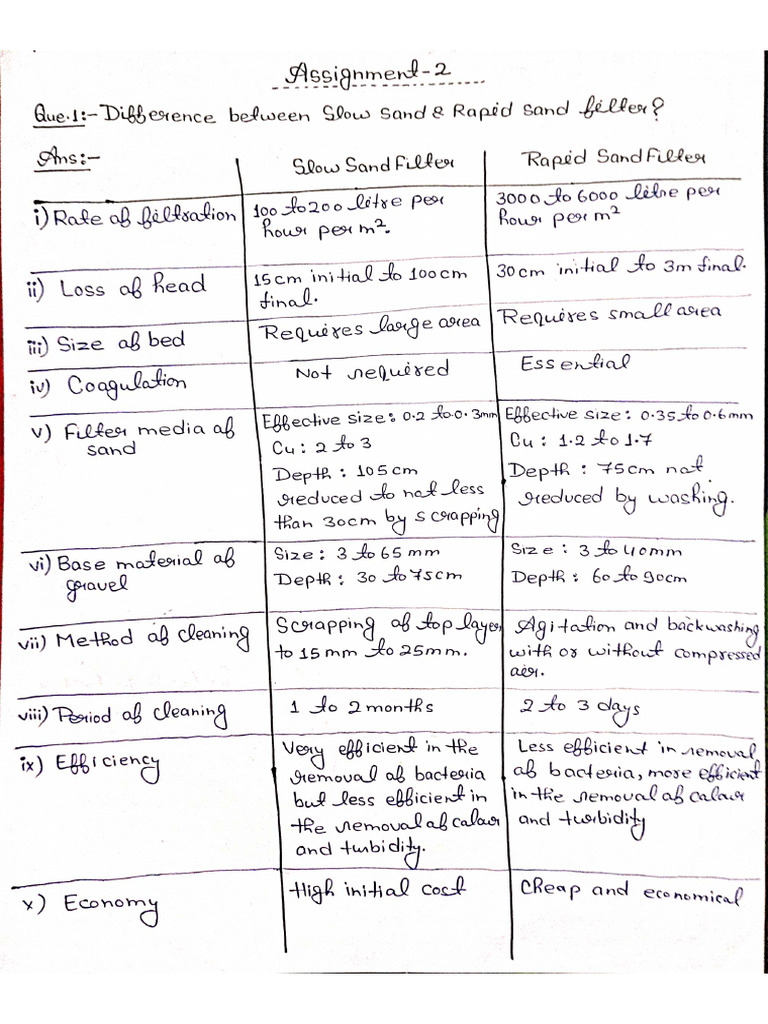 Assignment-2
Que.1:- Difference between Slow Sand & Rapid Sand filter?
Ans:-
Slow Sand Filter
Rapid Sand Filter
i) Rate of filtration
100 to 200 litre per
hour per m².
3000 to 6000 litre per
hour per m²
ii) Loss of head
15cm initial to 100cm
final.
30cm initial to 3m final.
iii) Size of bed
Requires large area
Requires small area
iv) Coagulation
Not required
Essential
v) Filter media of
sand
Effective size: 0.2 to 0.3mm
Cu: 2 to 3
Depth: 105cm
reduced to not less
than 30cm by scrapping
Effective size: 0.35 to 0.6mm
Cu: 1.2 to 1.7
Depth: 75cm not
reduced by washing.
vi) Base material of
gravel
Size: 3 to 65 mm
Depth: 30 to 75cm
Size: 3 to 40mm
Depth: 60 to 90cm
vii) Method of cleaning
Scrapping of top layer
to 15mm to 25mm.
Agitation and backwashing
with or without compressed
air.
viii) Period of cleaning
1 to 2 months
2 to 3 days
ix) Efficiency
Very efficient in the
removal of bacteria
but less efficient in
the removal of colour
and turbidity.
Less efficient in removal
of bacteria, more efficient
in the removal of colour
and turbidity
x) Economy
High initial cost
Cheap and economical